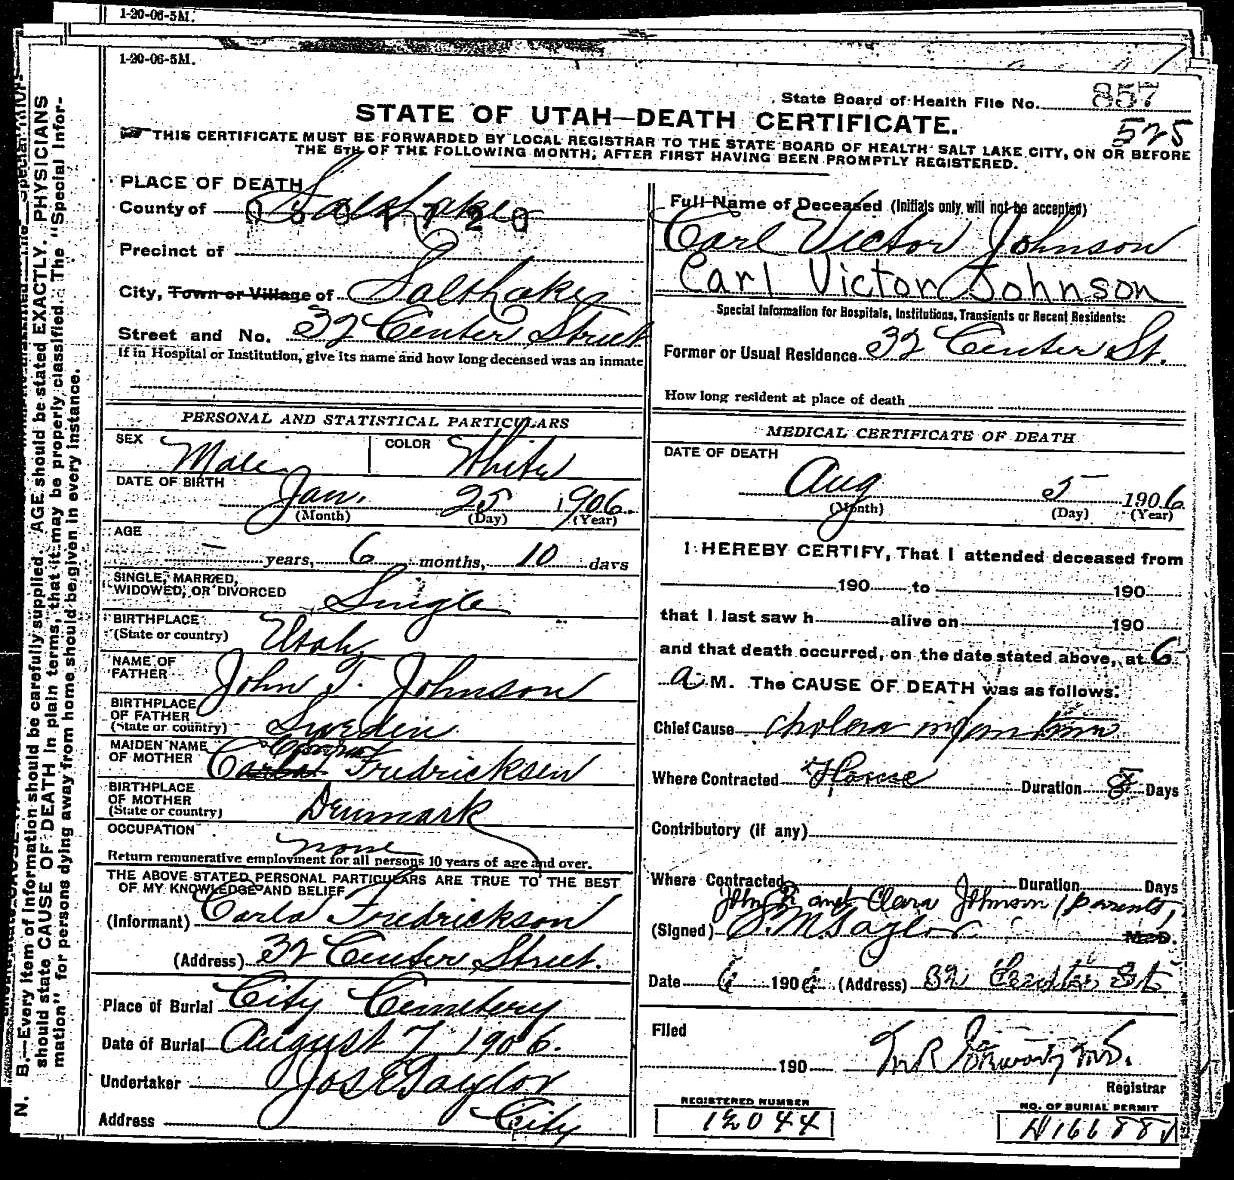 1-20-06-5M.
1-20-06-5M.
State Board of Health File No. 857
525
STATE OF UTAH—DEATH CERTIFICATE.
THIS CERTIFICATE MUST BE FORWARDED BY LOCAL REGISTRAR TO THE STATE BOARD OF HEALTH SALT LAKE CITY, ON OR BEFORE
THE 5TH OF THE FOLLOWING MONTH, AFTER FIRST HAVING BEEN PROMPTLY REGISTERED.
N. B.—Every item of information should be carefully supplied. AGE should be stated EXACTLY. PHYSICIANS
should state CAUSE OF DEATH in plain terms, that it may be properly classified. The "Special Infor-
mation" for persons dying away from home should be given in every instance.
PLACE OF DEATH
County of Salt Lake
Precinct of
City, Town or Village of Salt Lake
Street and No. 32 Center Street
If in Hospital or Institution, give its name and how long deceased was an inmate
PERSONAL AND STATISTICAL PARTICULARS
SEX Male COLOR White
DATE OF BIRTH Jan. 25 1906.
(Month) (Day) (Year)
AGE
– years, 6 months, 10 days
SINGLE, MARRIED,
WIDOWED, OR DIVORCED Single
BIRTHPLACE
(State or country) Utah
NAME OF
FATHER John T. Johnson
BIRTHPLACE
OF FATHER
(State or country) Sweden
MAIDEN NAME
OF MOTHER Carla Fredricksen
BIRTHPLACE
OF MOTHER
(State or country) Denmark
OCCUPATION none
Return remunerative employment for all persons 10 years of age and over.
THE ABOVE STATED PERSONAL PARTICULARS ARE TRUE TO THE BEST
OF MY KNOWLEDGE AND BELIEF
(Informant) Carla Fredrickson
(Address) 32 Center Street.
Place of Burial City Cemetery
Date of Burial August 7 1906.
Undertaker Jos E Taylor
Address City
Full Name of Deceased (Initials only will not be accepted)
Carl Victor Johnson
Carl Victor Johnson
Special Information for Hospitals, Institutions, Transients or Recent Residents:
Former or Usual Residence 32 Center St.
How long resident at place of death
MEDICAL CERTIFICATE OF DEATH
DATE OF DEATH
Aug 5 1906
(Month) (Day) (Year)
I HEREBY CERTIFY, That I attended deceased from
190 to 190
that I last saw h alive on 190
and that death occurred, on the date stated above, at 6
a. M. The CAUSE OF DEATH was as follows:
Chief Cause cholera infantum
Where Contracted Home Duration 8 Days
Contributory (if any)
Where Contracted Duration Days
John R and Clara Johnson (parents)
(Signed) S. M. Taylor M.D.
Date 6 1906 (Address) 32 Center St
Filed
190
Registrar
REGISTERED NUMBER
12044
NO. OF BURIAL PERMIT
H16688